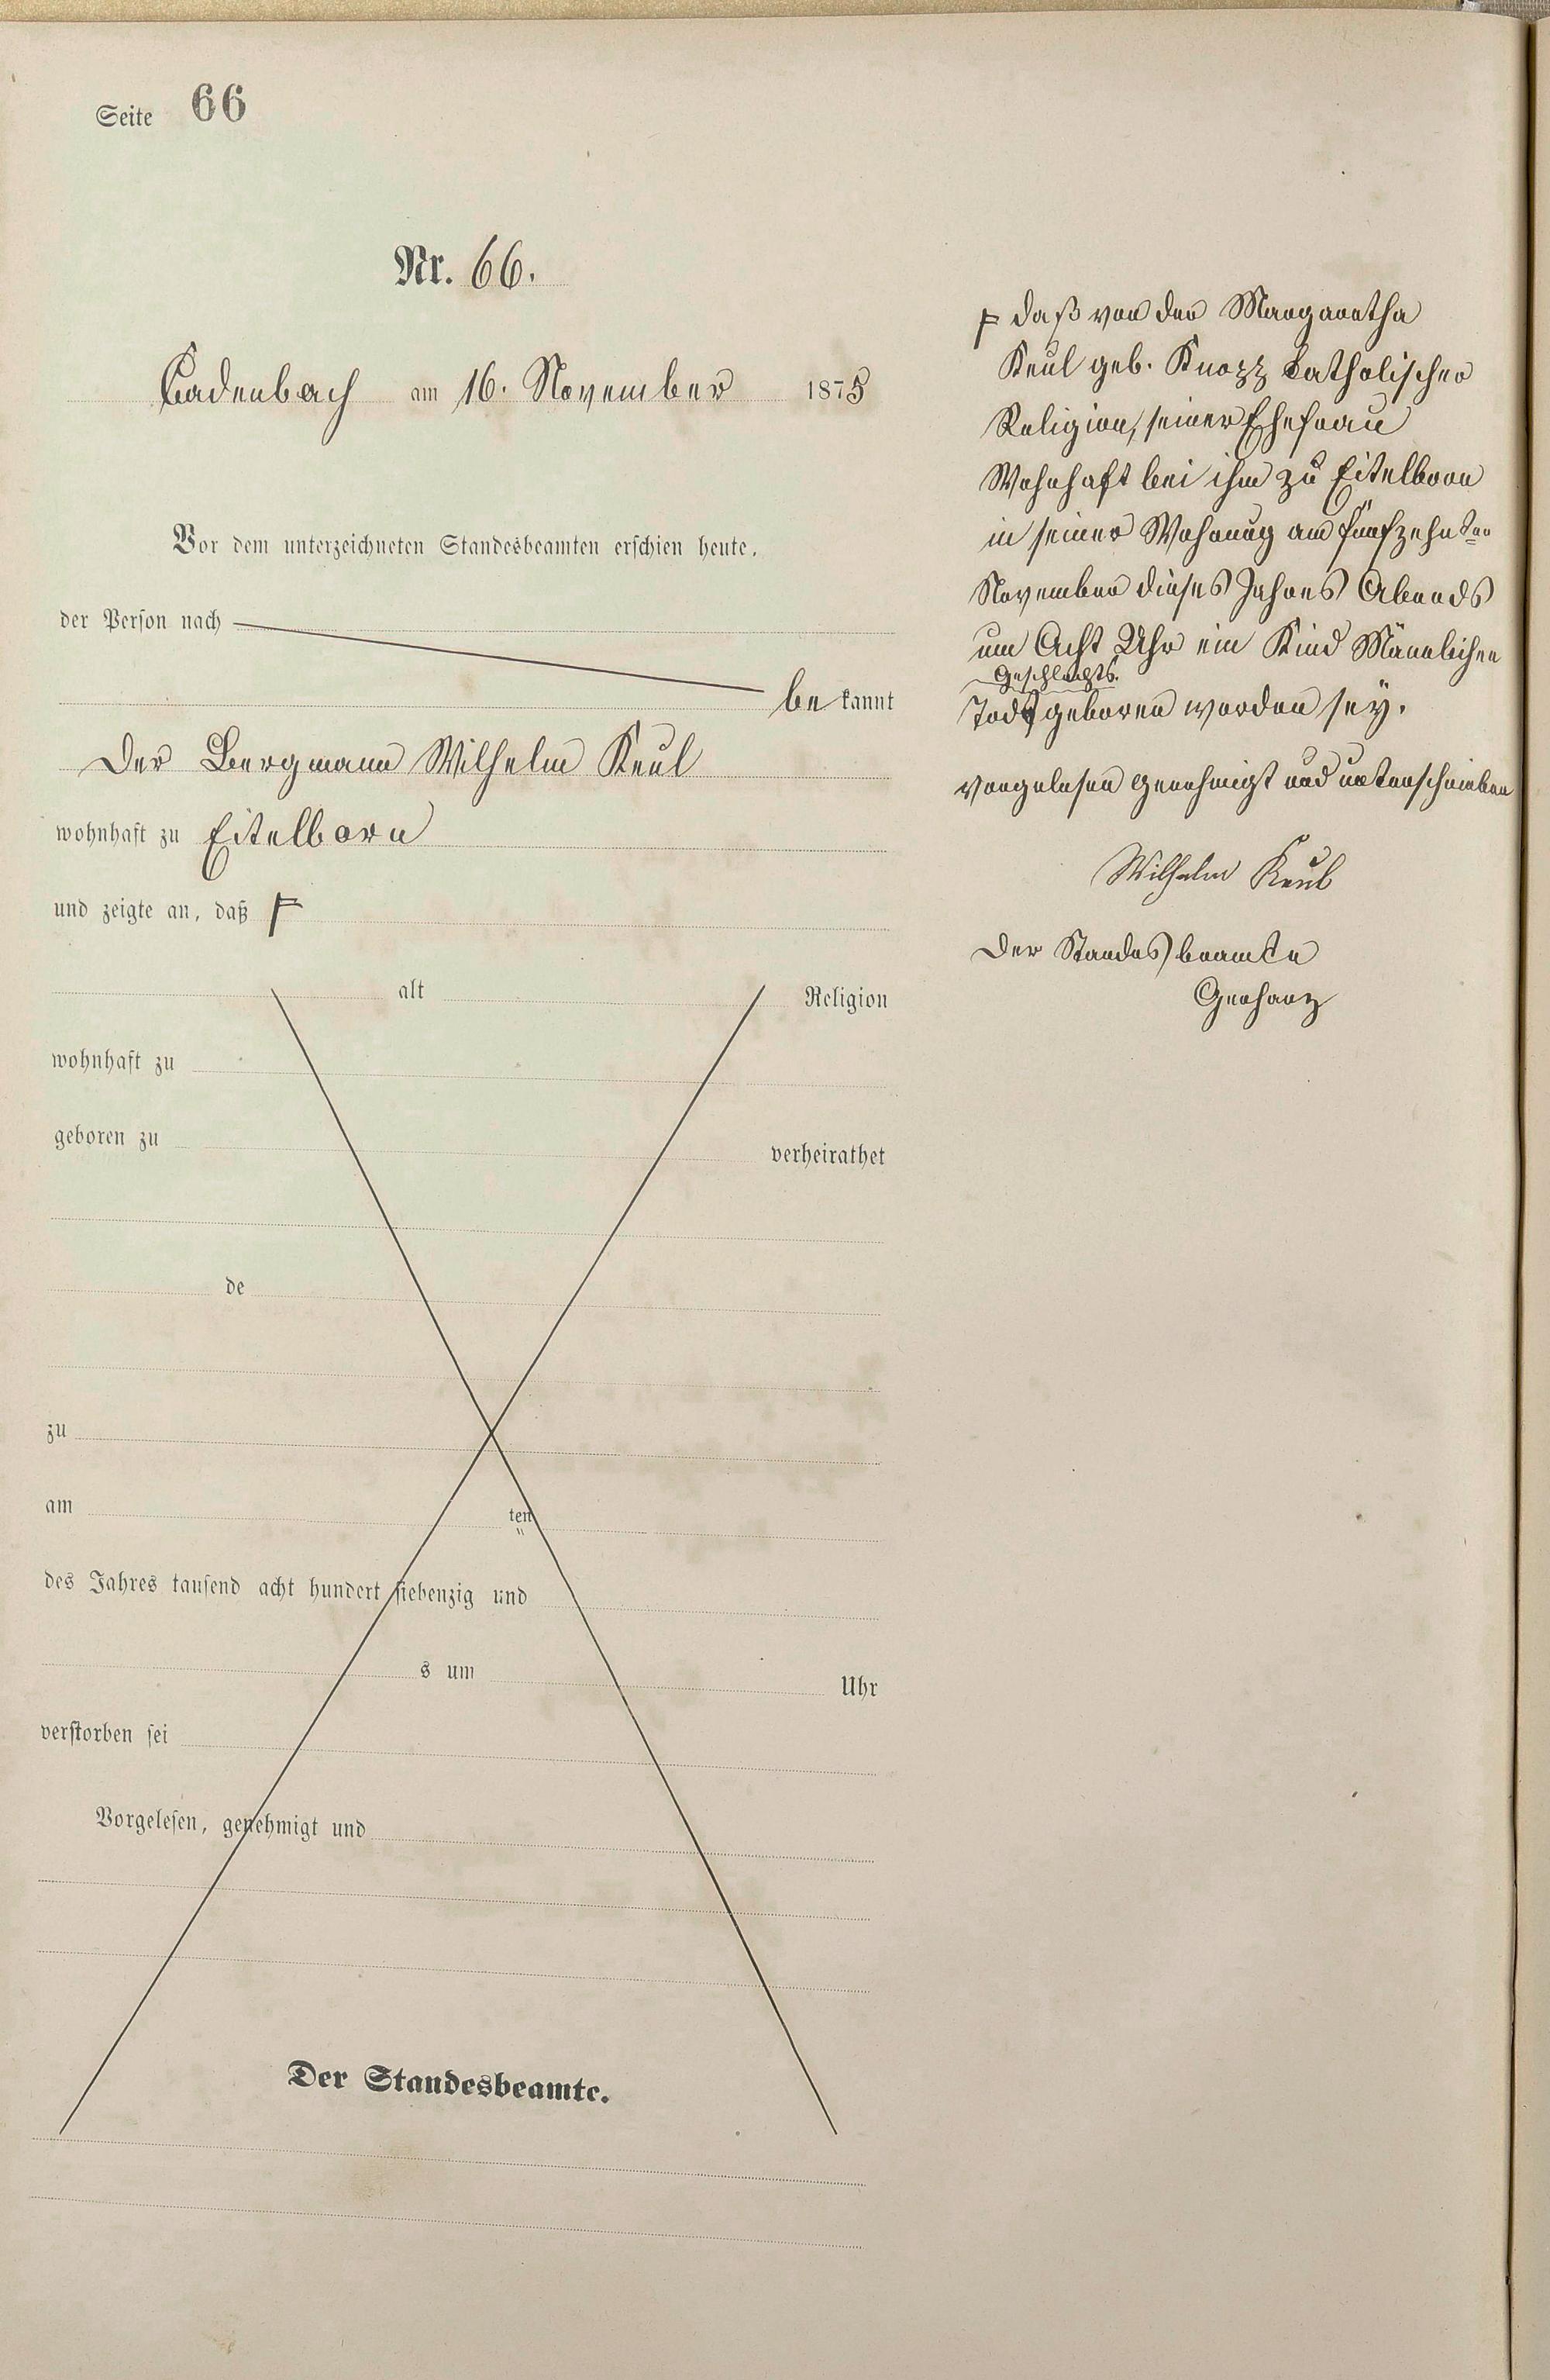 Seite 66
Nr. 66.
Cadenbach am 16. November 1875
Vor dem unterzeichneten Standesbeamten erschien heute,
der Person nach
be kannt
Der Bergmann Wilhelm Keul
wohnhaft zu Eitelborn
und zeigte an, daß Ƒ
alt Religion
wohnhaft zu
geboren zu verheirathet
de
zu
am ten
des Jahres tausend acht hundert siebenzig und
s um Uhr
verstorben sei
Vorgelesen, genehmigt und
Der Standesbeamte.
Ƒ daß von der Margaretha
Keul geb. katholischer
Religion, seiner Ehefrau
Wohnhaft bei ihm zu Eitelborn
in seiner Wohnung am fünfzehnten
November dieses Jahres Abends
um Acht Uhr ein Kind Männlichen
Geschlechts.
Todt geboren worden sey.
vorgelesen genehmigt und unterschrieben
Wilhelm Keul
Der Standesbeamte
Gerharz